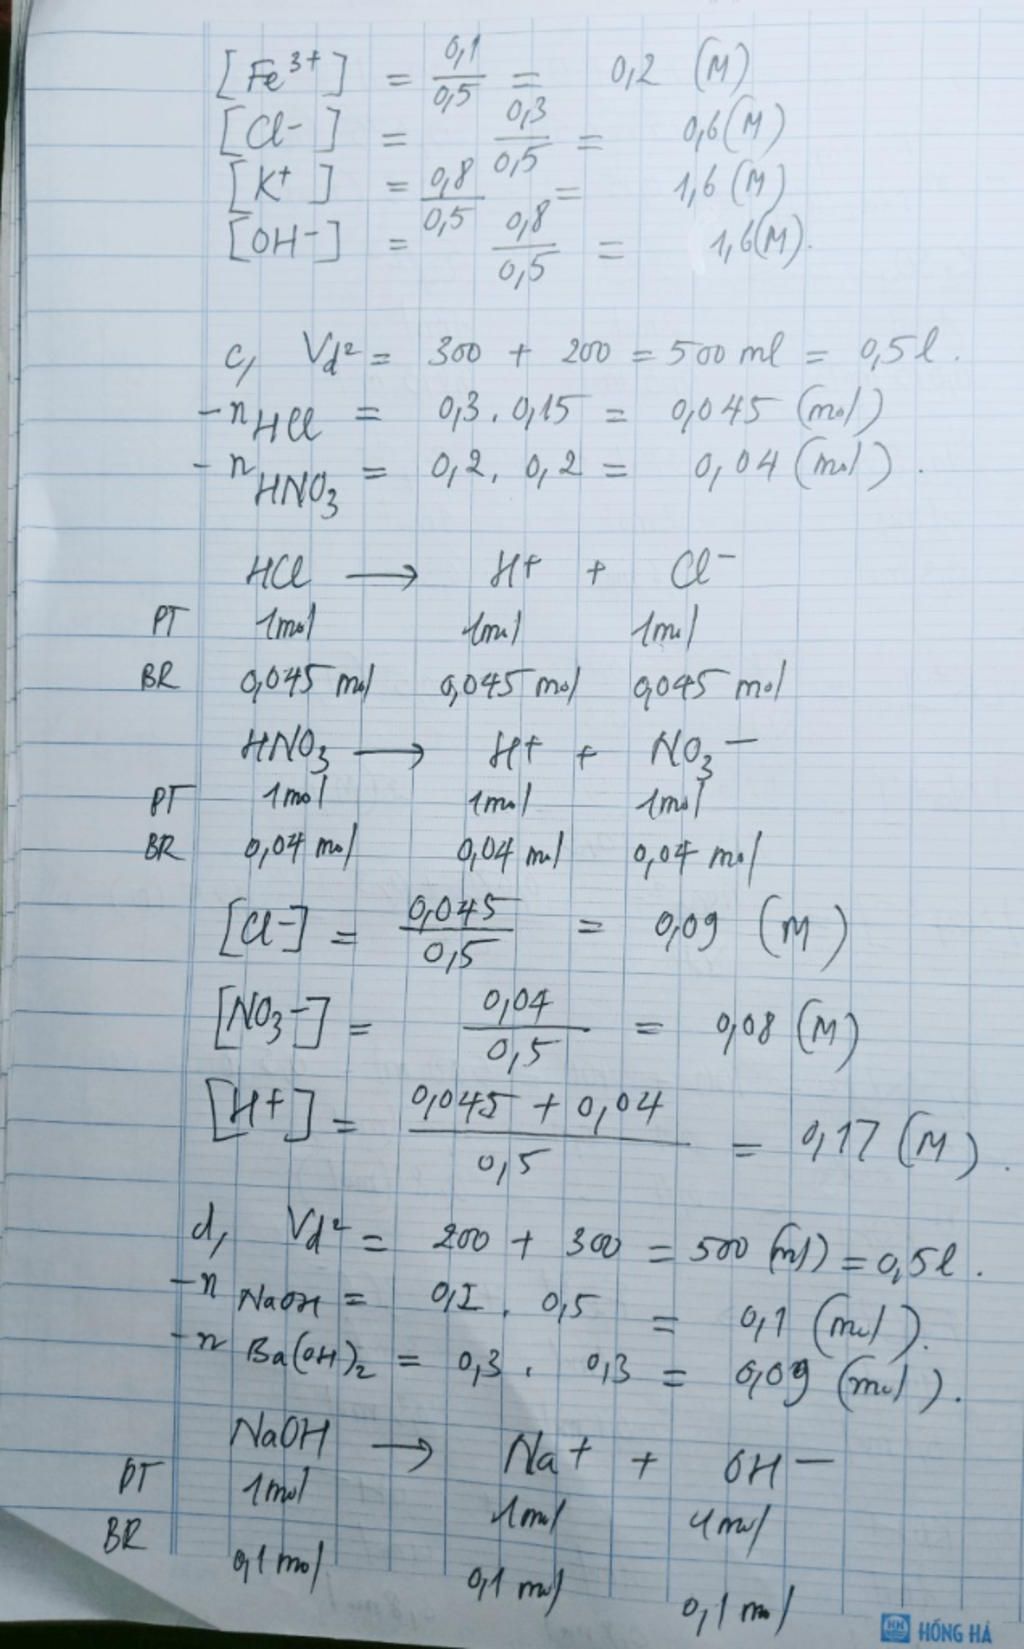 [Fe³⁺] = 0,1/0,5 = 0,2 (M)
[Cl⁻] = 0,3/0,5 = 0,6 (M)
[K⁺] = 0,8/0,5 = 1,6 (M)
[OH⁻] = 0,8/0,5 = 1,6 (M).
c, Vd² = 300 + 200 = 500 ml = 0,5 l.
- nHCl = 0,3 . 0,15 = 0,045 (mol)
- nHNO₃ = 0,2 . 0,2 = 0,04 (mol).
HCl → H⁺ + Cl⁻
PT 1mol 1mol 1mol
BR 0,045 mol 0,045 mol 0,045 mol
HNO₃ → H⁺ + NO₃⁻
PT 1mol 1mol 1mol
BR 0,04 mol 0,04 mol 0,04 mol
[Cl⁻] = 0,045/0,5 = 0,09 (M)
[NO₃⁻] = 0,04/0,5 = 0,08 (M)
[H⁺] = (0,045 + 0,04)/0,5 = 0,17 (M).
d, Vd² = 200 + 300 = 500 (ml) = 0,5 l.
- nNaOH = 0,2 . 0,5 = 0,1 (mol).
- nBa(OH)₂ = 0,3 . 0,3 = 0,09 (mol).
NaOH → Na⁺ + OH⁻
PT 1mol 1mol 1mol
BR 0,1 mol 0,1 mol 0,1 mol
HỒNG HÀ